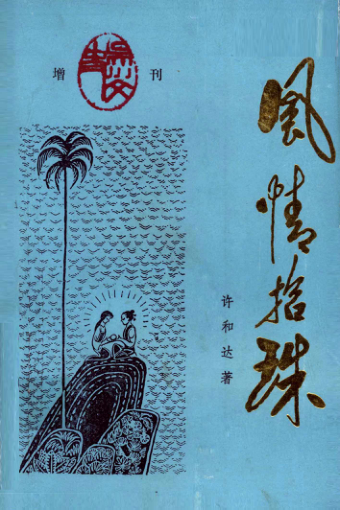 增刊
风情拾珠
许和达著